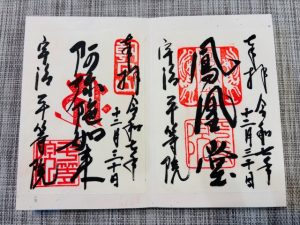 奉拝 令和七年
十二月三十日
鳳凰堂
宇治 平等院
奉拝 令和七年
十二月三十日
阿弥陀如来
宇治 平等院